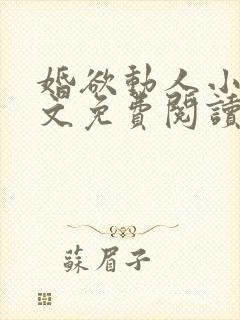 婚欲動人小
文免費閱讀
蘇眉子